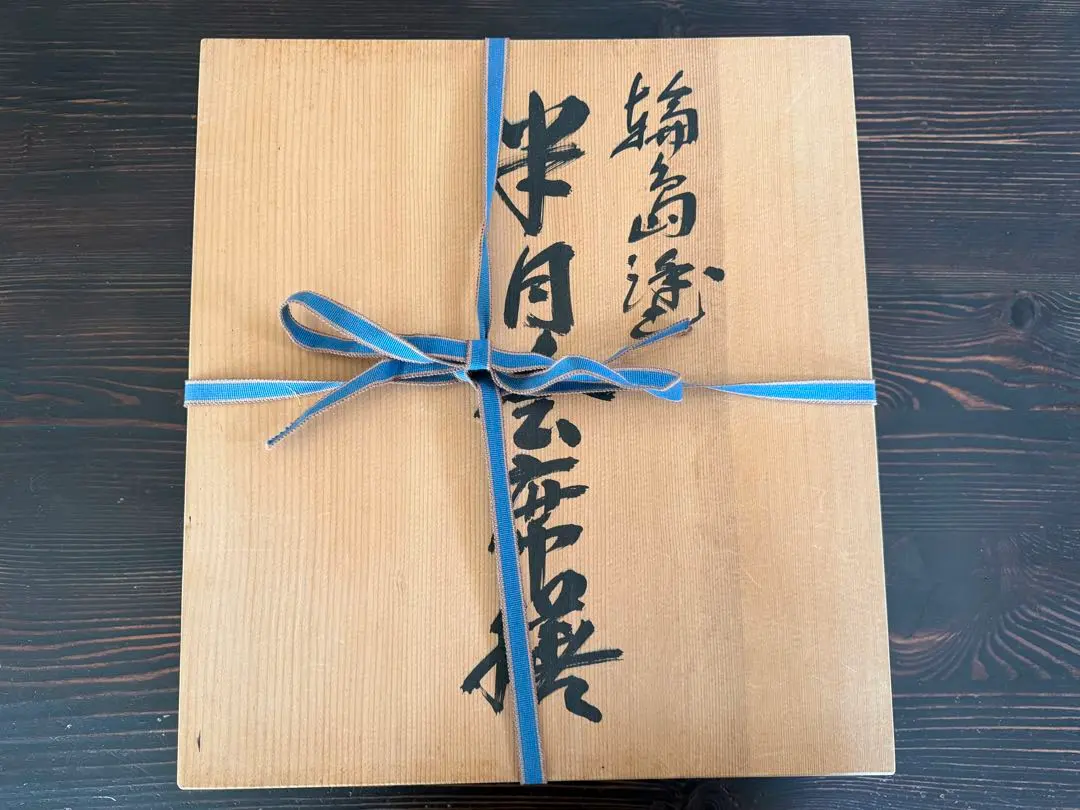 輪島塗
半月会席膳